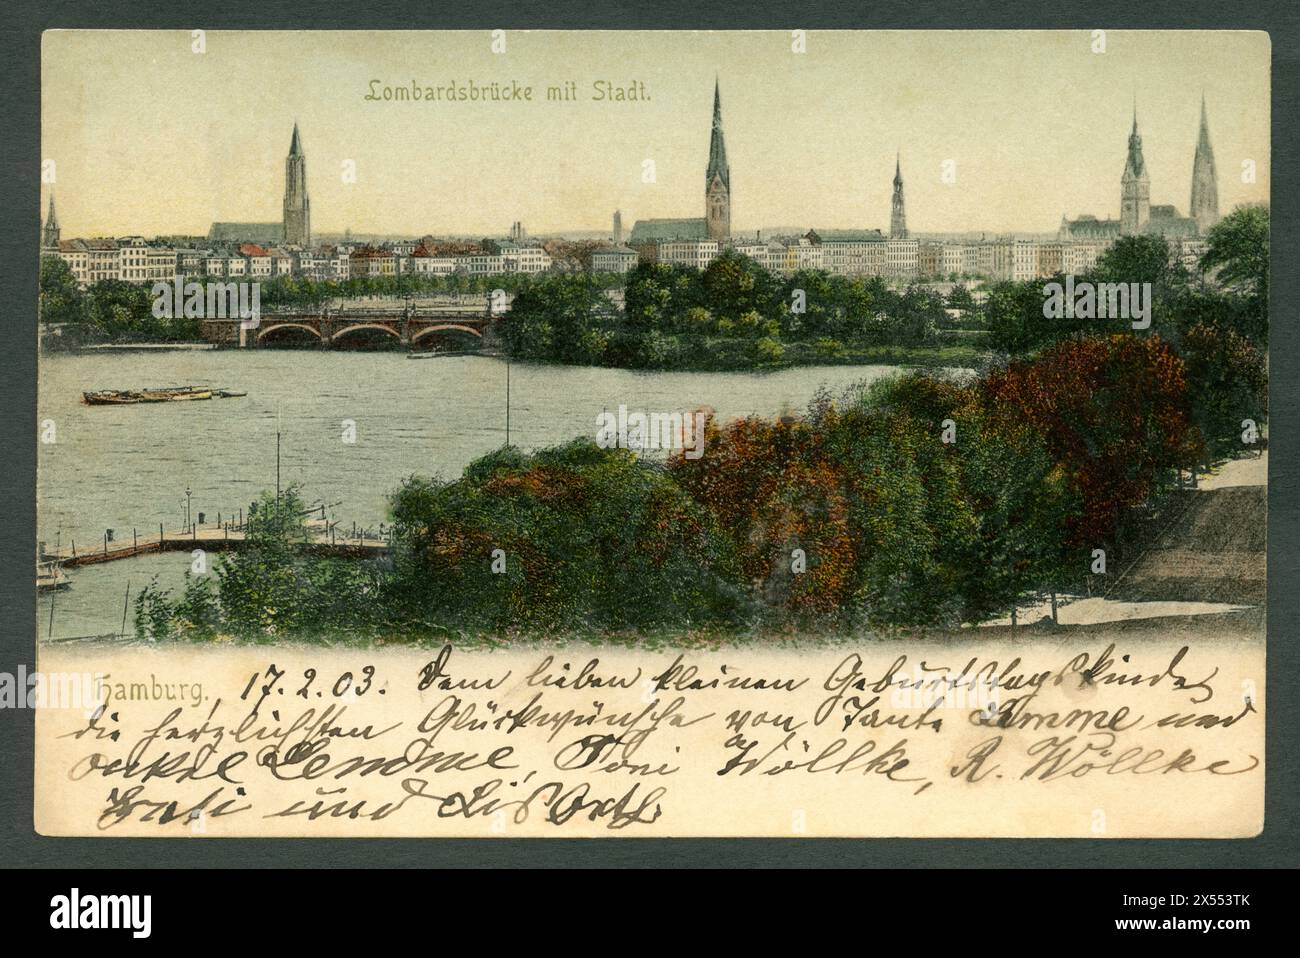 Lombardsbrücke mit Stadt.
Hamburg. , 17. 2. 03. Dem lieben kleinen Geburtstagskinde
die herzlichsten Glückwünsche von Tante Lemme und
Onkel Lemme, Toni Wöllke, R. Wöllke
und Lisbeth
alamy
Image ID: 2X553TK
www.alamy.com